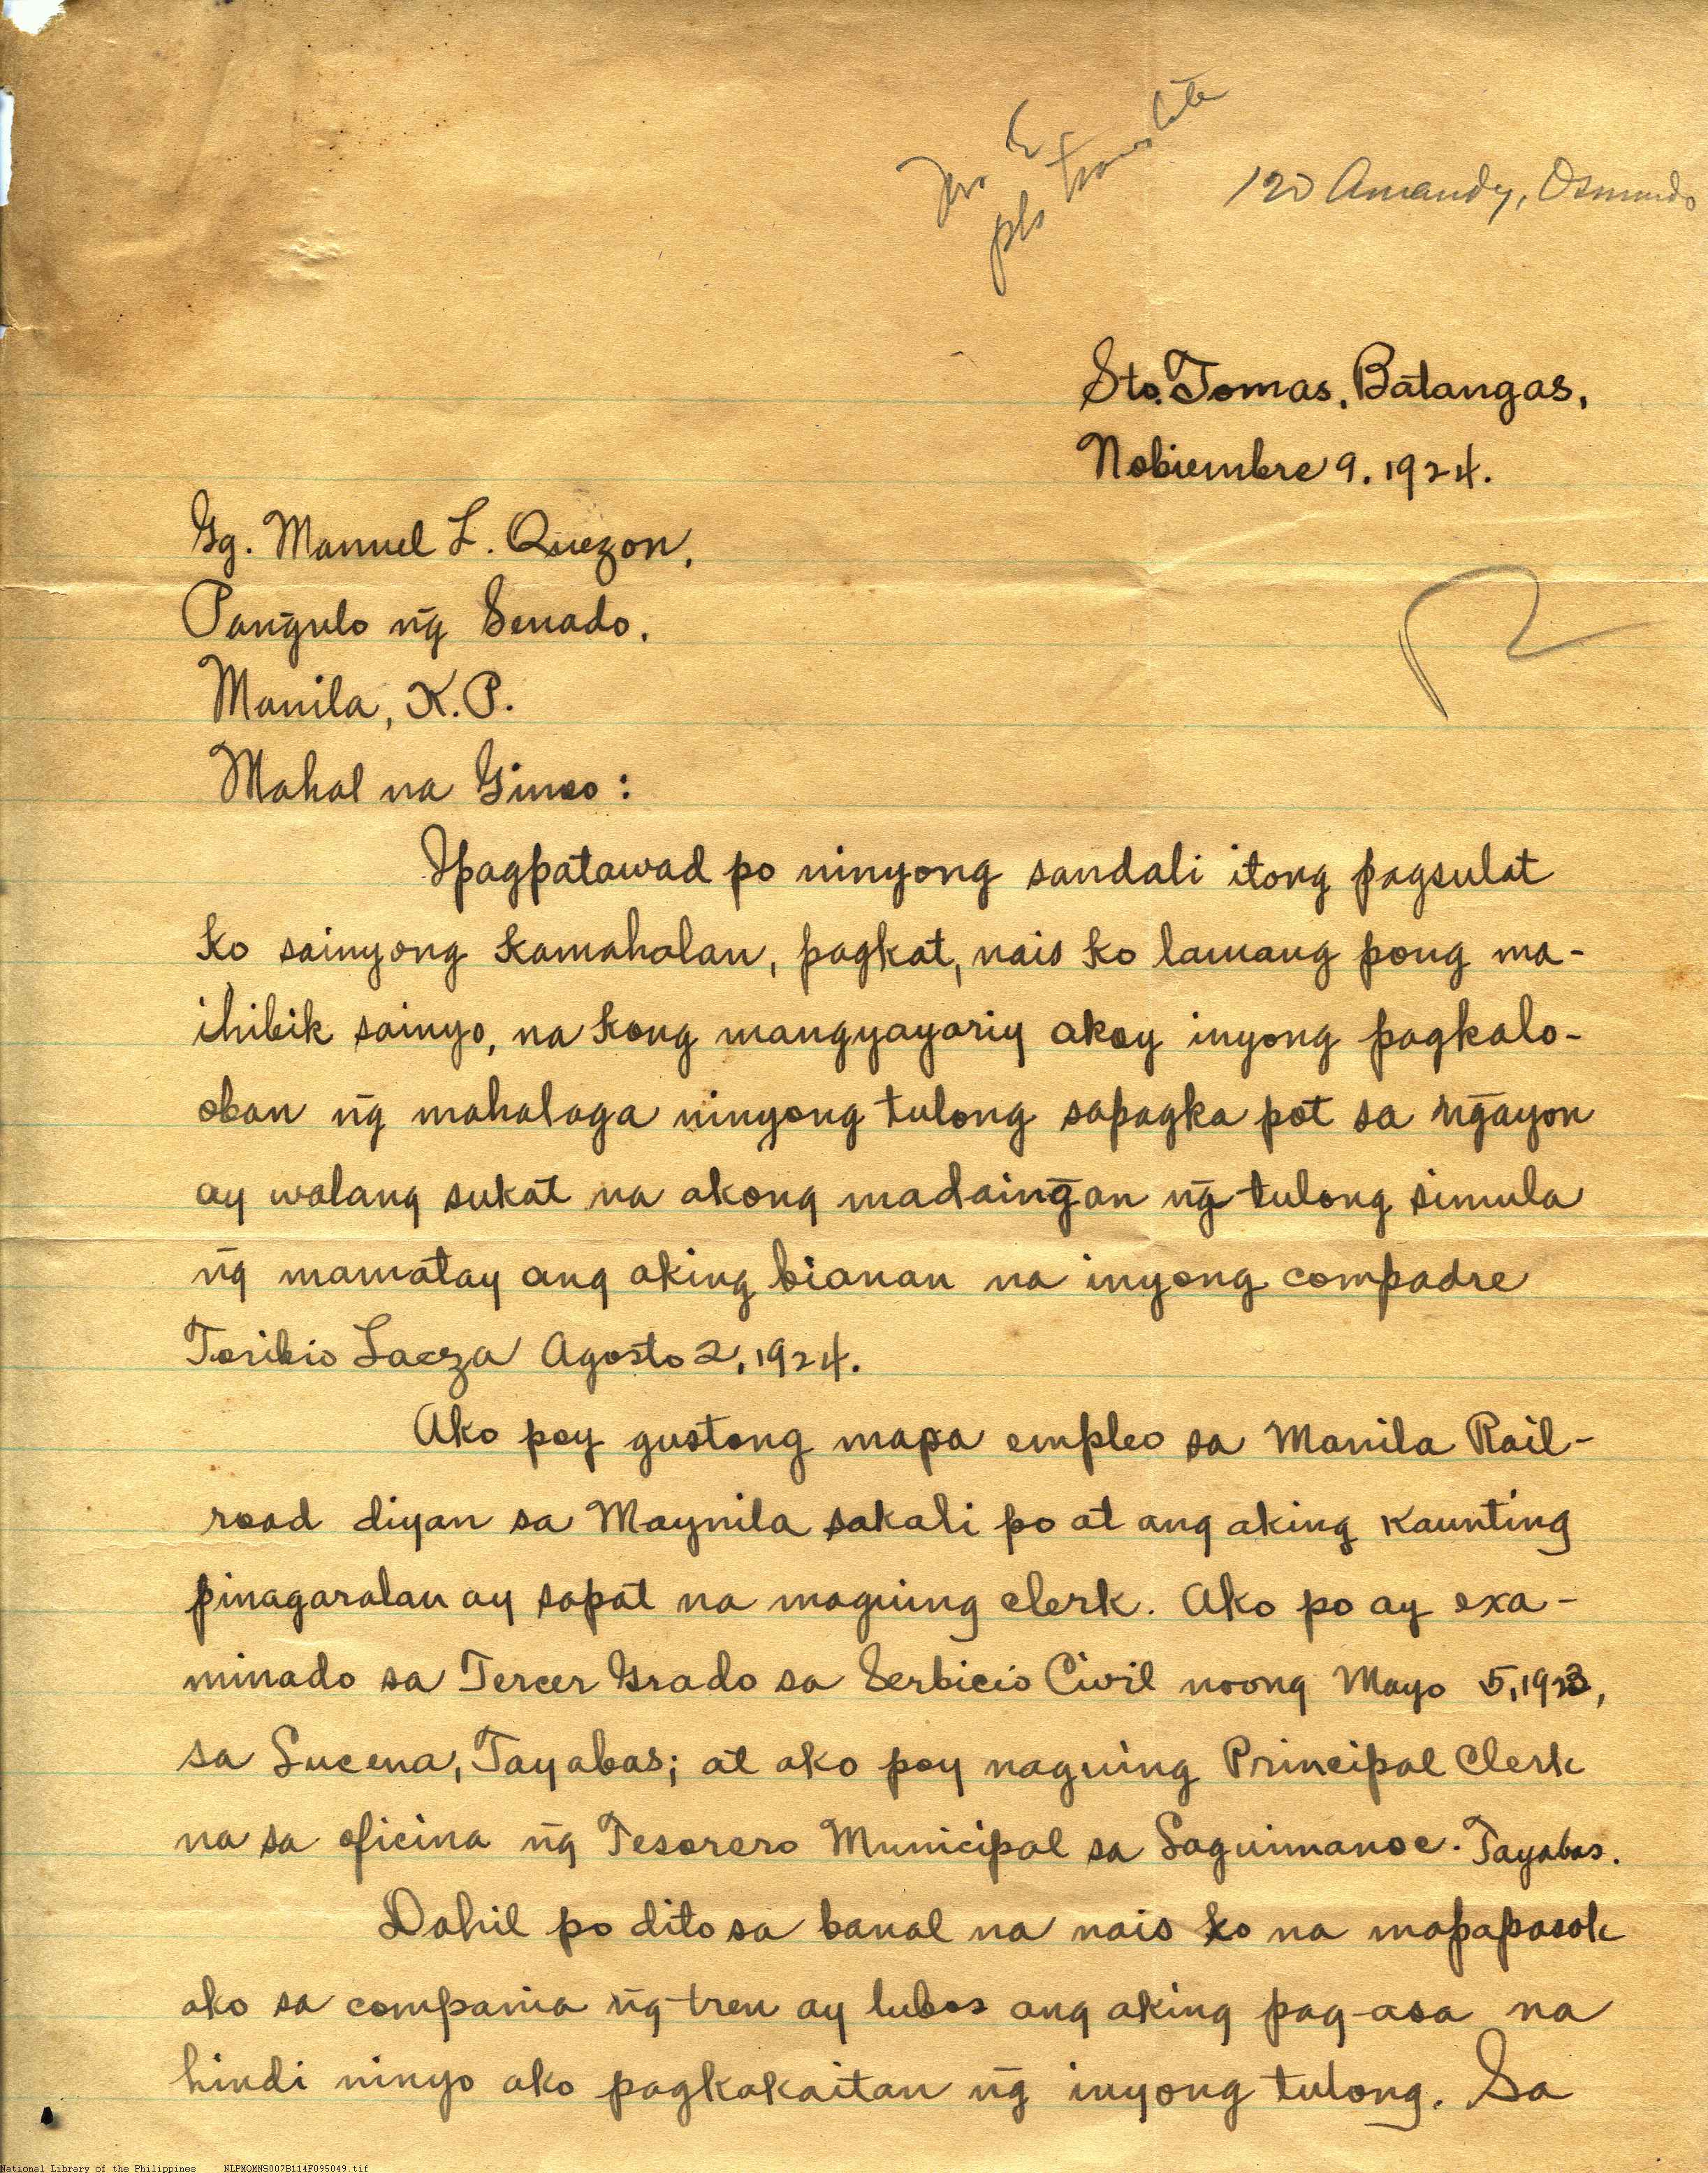 pls translate
120 Amandy, Osmundo
Sto. Tomas, Batangas,
Nobiembre 9, 1924.
Gg. Manuel L. Quezon,
Pañgulo ñg Senado,
Manila, K.P.
Mahal na Ginoo:
Ipagpatawad po ninyong sandali itong pagsulat
ko sainyong kamahalan, pagkat, nais ko lamang pong ma-
ihibik sainyo, na kong mangyayariy akoy inyong pagkalo-
oban ñg mahalaga ninyong tulong sapagka pot sa ñgayon
ay walang sukat na akong madaiñgan ñg tulong simula
ñg mamatay ang aking bianan na inyong compadre
Toribio Laeza Agosto 2, 1924.
Ako poy gustong mapa empleo sa Manila Rail-
road diyan sa Maynila sakali po at ang aking kaunting
pinagaralan ay sapat na maguing clerk. Ako po ay exa-
minado sa Tercer Grado sa Serbicio Civil noong Mayo 5, 1923,
sa Lucena, Tayabas; at ako poy naguing Principal Clerk
na sa oficina ñg Tesorero Municipal sa Laguimanoc. Tayabas.
Dahil po dito sa banal na nais ko na mapapasok
ako sa compania ñg tren ay lubos ang aking pag-asa na
hindi ninyo ako pagkakaitan ñg inyong tulong. Sa
National Library of the Philippines NLPMQMNS007B114F095049.tif